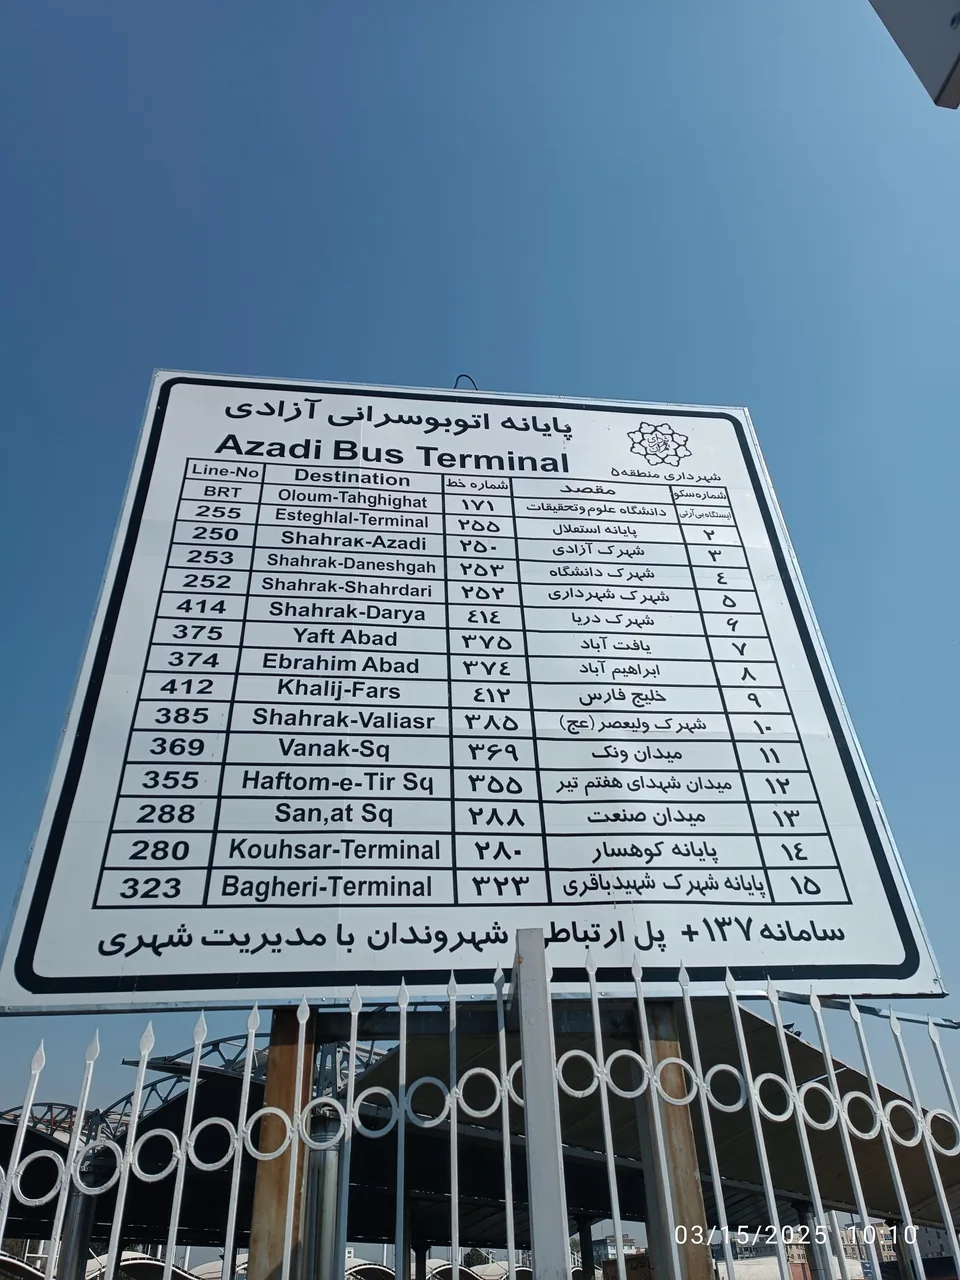 پایانه اتوبوسرانی آزادی
Azadi Bus Terminal
شهرداری منطقه۵
Line-No Destination شماره خط مقصد شماره سکو
BRT Oloum-Tahghighat ۱۷۱ دانشگاه علوم وتحقیقات ایستگاه بی آرتی
255 Esteghlal-Terminal ۲۵۵ پایانه استقلال ۲
250 Shahrak-Azadi ۲۵۰ شهرک آزادی ۳
253 Shahrak-Daneshgah ۲۵۳ شهرک دانشگاه ٤
252 Shahrak-Shahrdari ۲۵۲ شهرک شهرداری ۵
414 Shahrak-Darya ٤۱٤ شهرک دریا ۶
375 Yaft Abad ۳۷۵ یافت آباد ۷
374 Ebrahim Abad ۳۷٤ ابراهیم آباد ۸
412 Khalij-Fars ٤۱۲ خلیج فارس ۹
385 Shahrak-Valiasr ۳۸۵ شهرک ولیعصر (عج) ۱۰
369 Vanak-Sq ۳۶۹ میدان ونک ۱۱
355 Haftom-e-Tir Sq ۳۵۵ میدان شهدای هفتم تیر ۱۲
288 San,at Sq ۲۸۸ میدان صنعت ۱۳
280 Kouhsar-Terminal ۲۸۰ پایانه کوهسار ۱٤
323 Bagheri-Terminal ۳۲۳ پایانه شهرک شهیدباقری ۱۵
سامانه ۱۳۷+ پل ارتباطی شهروندان با مدیریت شهری
03/15/2025 10:10